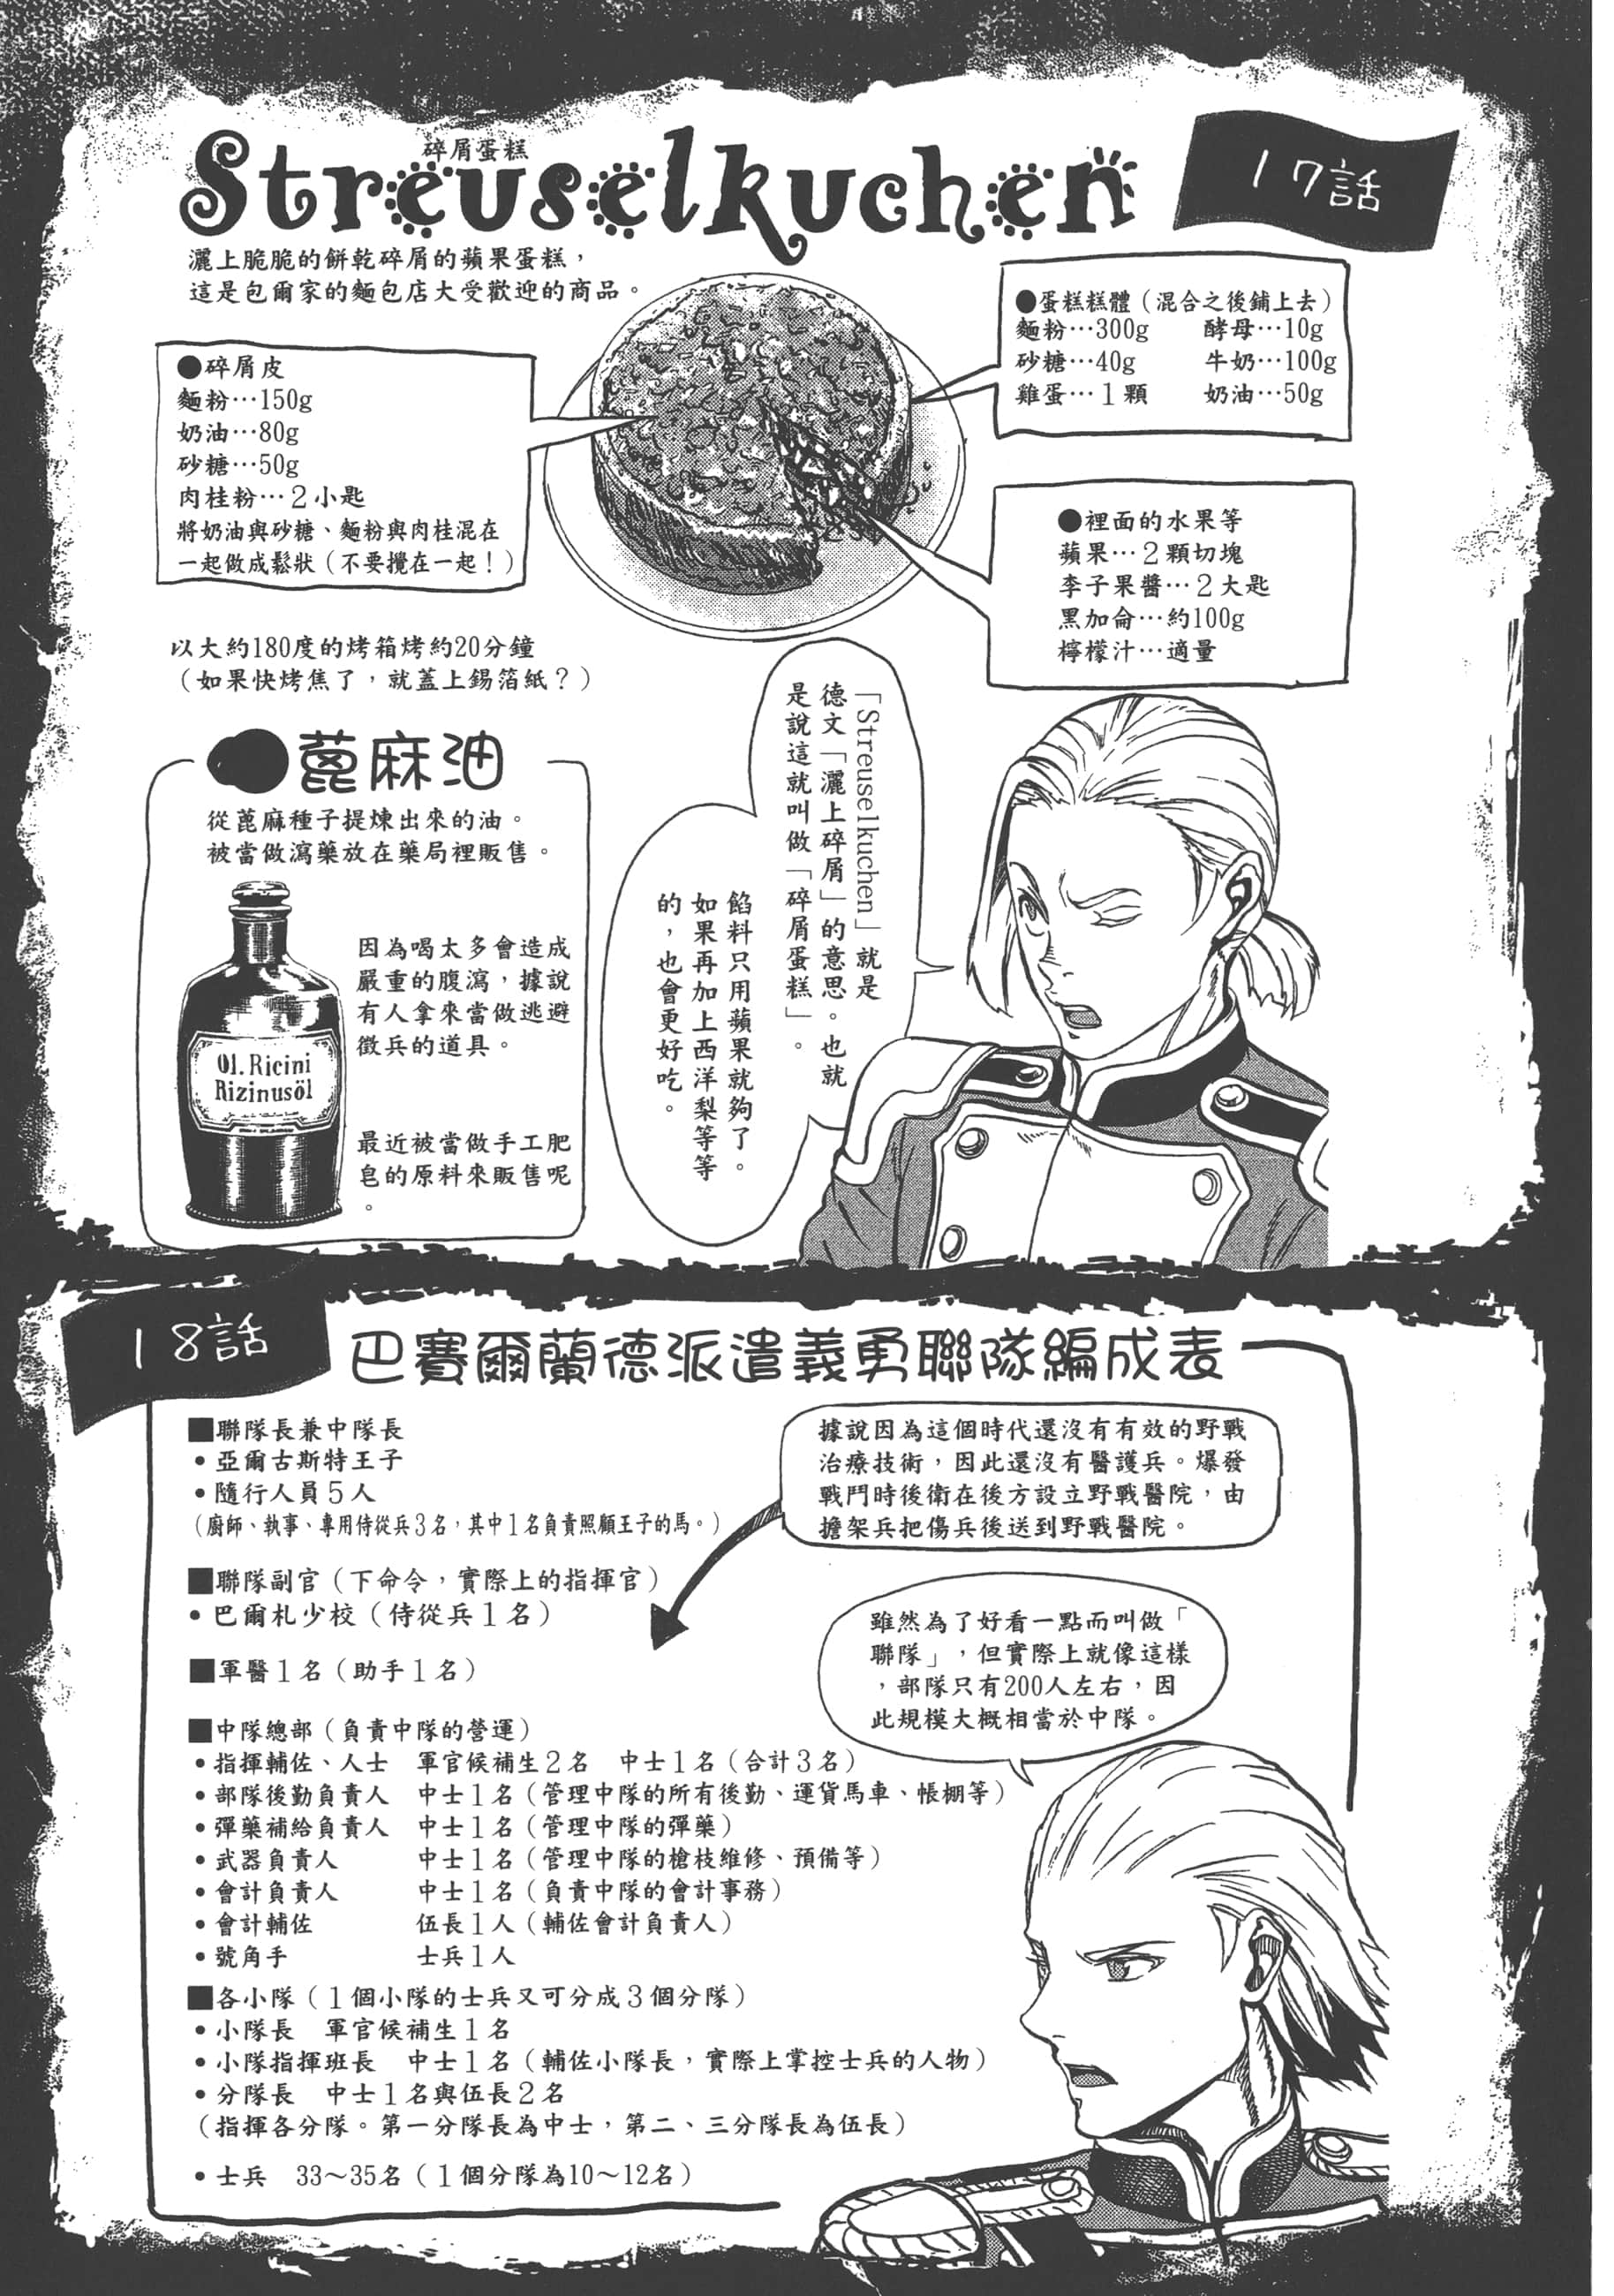 17話
碎屑蛋糕
Streuselkuchen
灑上脆脆的餅乾碎屑的蘋果蛋糕，
這是包爾家的麵包店大受歡迎的商品。
●碎屑皮
麵粉…150g
奶油…80g
砂糖…50g
肉桂粉…2小匙
將奶油與砂糖、麵粉與肉桂混在
一起做成鬆狀（不要攪在一起！）
●蛋糕糕體（混合之後鋪上去）
麵粉…300g　酵母…10g
砂糖…40g　牛奶…100g
雞蛋…1顆　奶油…50g
●裡面的水果等
蘋果…2顆切塊
李子果醬…2大匙
黑加侖…約100g
檸檬汁…適量
以大約180度的烤箱烤約20分鐘
（如果快烤焦了，就蓋上錫箔紙？）
「Streuselkuchen」就是
德文「灑上碎屑」的意思。也就
是說這就叫做「碎屑蛋糕」。
餡料只用蘋果就夠了。
如果再加上西洋梨等等
的，也會更好吃。
●蓖麻油
從蓖麻種子提煉出來的油。
被當做瀉藥放在藥局裡販售。
因為喝太多會造成
嚴重的腹瀉，據說
有人拿來當做逃避
徵兵的道具。
最近被當做手工肥
皂的原料來販售呢
。
Ol.Ricini
Rizinusöl
18話
巴賽爾蘭德派遣義勇聯隊編成表
■聯隊長兼中隊長
•亞爾古斯特王子
•隨行人員5人
（廚師、執事、專用侍從兵3名，其中1名負責照顧王子的馬。）
■聯隊副官（下命令，實際上的指揮官）
•巴爾札少校（侍從兵1名）
■軍醫1名（助手1名）
據說因為這個時代還沒有有效的野戰
治療技術，因此還沒有醫護兵。爆發
戰鬥時後衛在後方設立野戰醫院，由
擔架兵把傷兵後送到野戰醫院。
雖然為了好看一點而叫做「
聯隊」，但實際上就像這樣
，部隊只有200人左右，因
此規模大概相當於中隊。
■中隊總部（負責中隊的營運）
•指揮輔佐、人士　軍官候補生2名　中士1名（合計3名）
•部隊後勤負責人　中士1名（管理中隊的所有後勤、運貨馬車、帳棚等）
•彈藥補給負責人　中士1名（管理中隊的彈藥）
•武器負責人　中士1名（管理中隊的槍枝維修、預備等）
•會計負責人　中士1名（負責中隊的會計事務）
•會計輔佐　伍長1人（輔佐會計負責人）
•號角手　士兵1人
■各小隊（1個小隊的士兵又可分成3個分隊）
•小隊長　軍官候補生1名
•小隊指揮班長　中士1名（輔佐小隊長，實際上掌控士兵的人物）
•分隊長　中士1名與伍長2名
（指揮各分隊。第一分隊長為中士，第二、三分隊長為伍長）
•士兵　33～35名（1個分隊為10～12名）